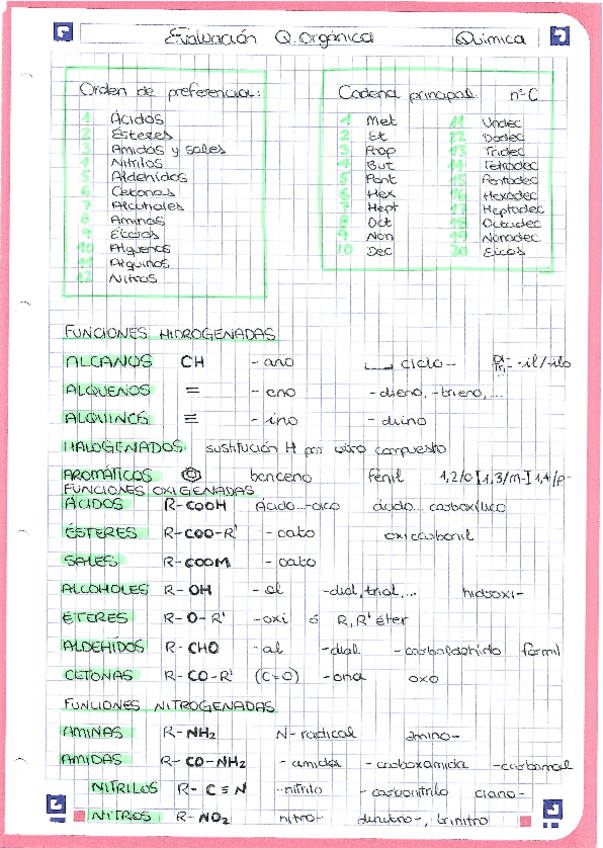 Evaluación Q. Orgánica Química
Orden de preferencia:
1 Ácidos
2 Esteres
3 Amidas y sales
4 Nitrilos
5 Aldehídos
6 Cetonas
7 Alcoholes
8 Aminas
9 Éteres
10 Alquenos
11 Alquinos
12 Nitros
Cadena principal: nº C
1 Met 11 Undec
2 Et 12 Dodec
3 Prop 13 Tridec
4 But 14 Tetradec
5 Pent 15 Pentadec
6 Hex 16 Hexadec
7 Hept 17 Heptadec
8 Oct 18 Octadec
9 Non 19 Nonadec
10 Dec 20 Eicos
FUNCIONES HIDROGENADAS
ALCANOS CH -ano ciclo- Di- Tri- -il/-ilo
ALQUENOS = -eno -dieno, -trieno,...
ALQUINOS ≡ -ino -diino
HALOGENADOS sustitución H por otro compuesto
AROMÁTICOS benceno fenil 1,2/o-[1,3/m-]1,4/p-
FUNCIONES OXIGENADAS
ÁCIDOS R-COOH Ácido...-oico ácido... carboxílico
ÉSTERES R-COO-R' -oato oxicarbonil
SALES R-COOM -oato
ALCOHOLES R-OH -ol -diol, triol,... hidroxi-
ÉTERES R-O-R' -oxi ó R,R' éter
ALDEHÍDOS R-CHO -al -dial -carbaldehído formil
CETONAS R-CO-R' (C=O) -ona oxo
FUNCIONES NITROGENADAS
AMINAS R-NH₂ N-radical amino-
AMIDAS R-CO-NH₂ -amida -carboxamida -carbamoil
NITRILOS R-C≡N -nitrilo -carbonitrilo ciano-
NITROS R-NO₂ nitro- dinitro-, trinitro